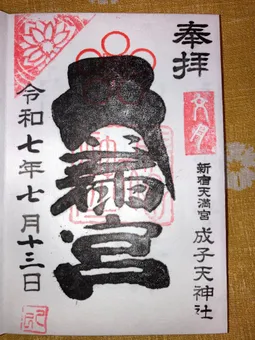 奉拝
文月
新宿天満宮
成子天神社
天満宮
令和七年七月十三日